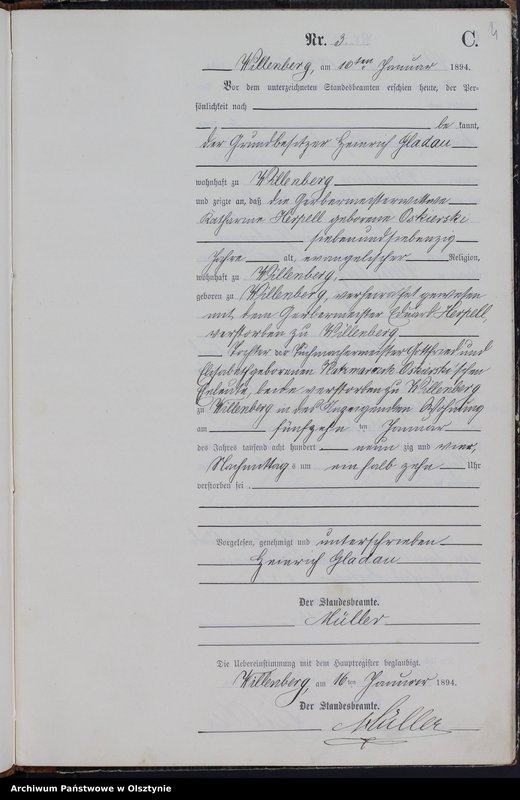 Nr. 3
C.
Willenberg, am 16ten Januar 1894.
Vor dem unterzeichneten Standesbeamten erschien heute, der Per-
sönlichkeit nach
be kannt,
der Grundbesitzer Heinrich Gladau
wohnhaft zu Willenberg
und zeigte an, daß die Gerbermeisterwittwe
Katharine Herpell geborene Oskierski
siebenundsiebenzig
Jahre alt, evangelischer Religion,
wohnhaft zu Willenberg,
geboren zu Willenberg, verheirathet gewesen
mit dem Gerbermeister Eduard Herpell,
verstorben zu Willenberg
Tochter der Tuchmachermeister Gottfried und
Elisabeth geborenen Oskierski'schen
Eheleute, beide verstorben zu Willenberg
zu Willenberg in des Anzeigenden Wohnung
am fünfzehn ten Januar
des Jahres tausend acht hundert neun zig und vier,
Nachmittag s um ein halb zehn Uhr
verstorben sei.
Vorgelesen, genehmigt und unterschrieben
Heinrich Gladau
Der Standesbeamte.
Müller
Die Uebereinstimmung mit dem Hauptregister beglaubigt.
Willenberg, am 16ten Januar 1894.
Der Standesbeamte.
Müller
Archiwum Państwowe w Olsztynie